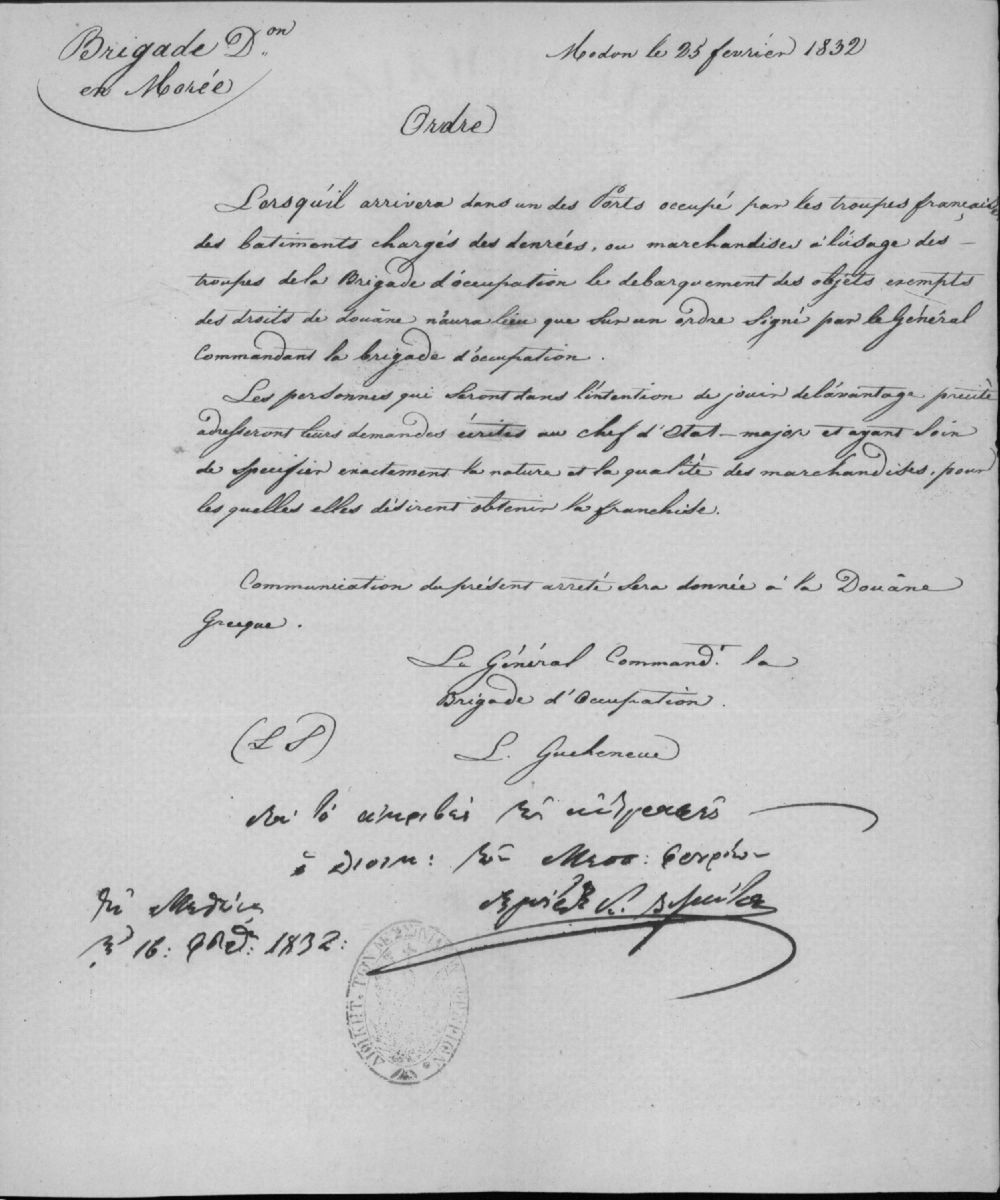 Brigade D.on
en Morée
Modon le 25 fevrier 1832
Ordre
Lorsqu'il arrivera dans un des Ports occupé par les troupes françaises
des batiments chargés des denrées, ou marchandises à l'usage des
troupes de la Brigade d'occupation le debarquement des objets exempts
des droits de douâne n'aura lieu que sur un ordre signé par le Général
Commandant la brigade d'occupation.
Les personnes qui seront dans l'intention de jouir de l'avantage précité
adresseront leurs demandes écrites au chef d'Etat-major et ayant soin
de specifier exactement la nature et la qualité des marchandises, pour
les quelles elles désirent obtenir la franchise.
Communication du présent arreté sera donnée à la Douâne
Grecque.
Le Général Command.t la
Brigade d'Occupation.
(L S)
L. Gueheneuc
διὰ τὸ ἀκριβὲς τῆς ἀντιγραφῆς
ὁ διοικ: τῶν Μεσσ: φρουρίων
Τῇ 16: φβρ: 1832:
ΔΙΟΙΚΗΤ. ΤΩΝ ΜΕΣΣΗΝΙΑΚΩΝ ΦΡΟΥΡΙΩΝ